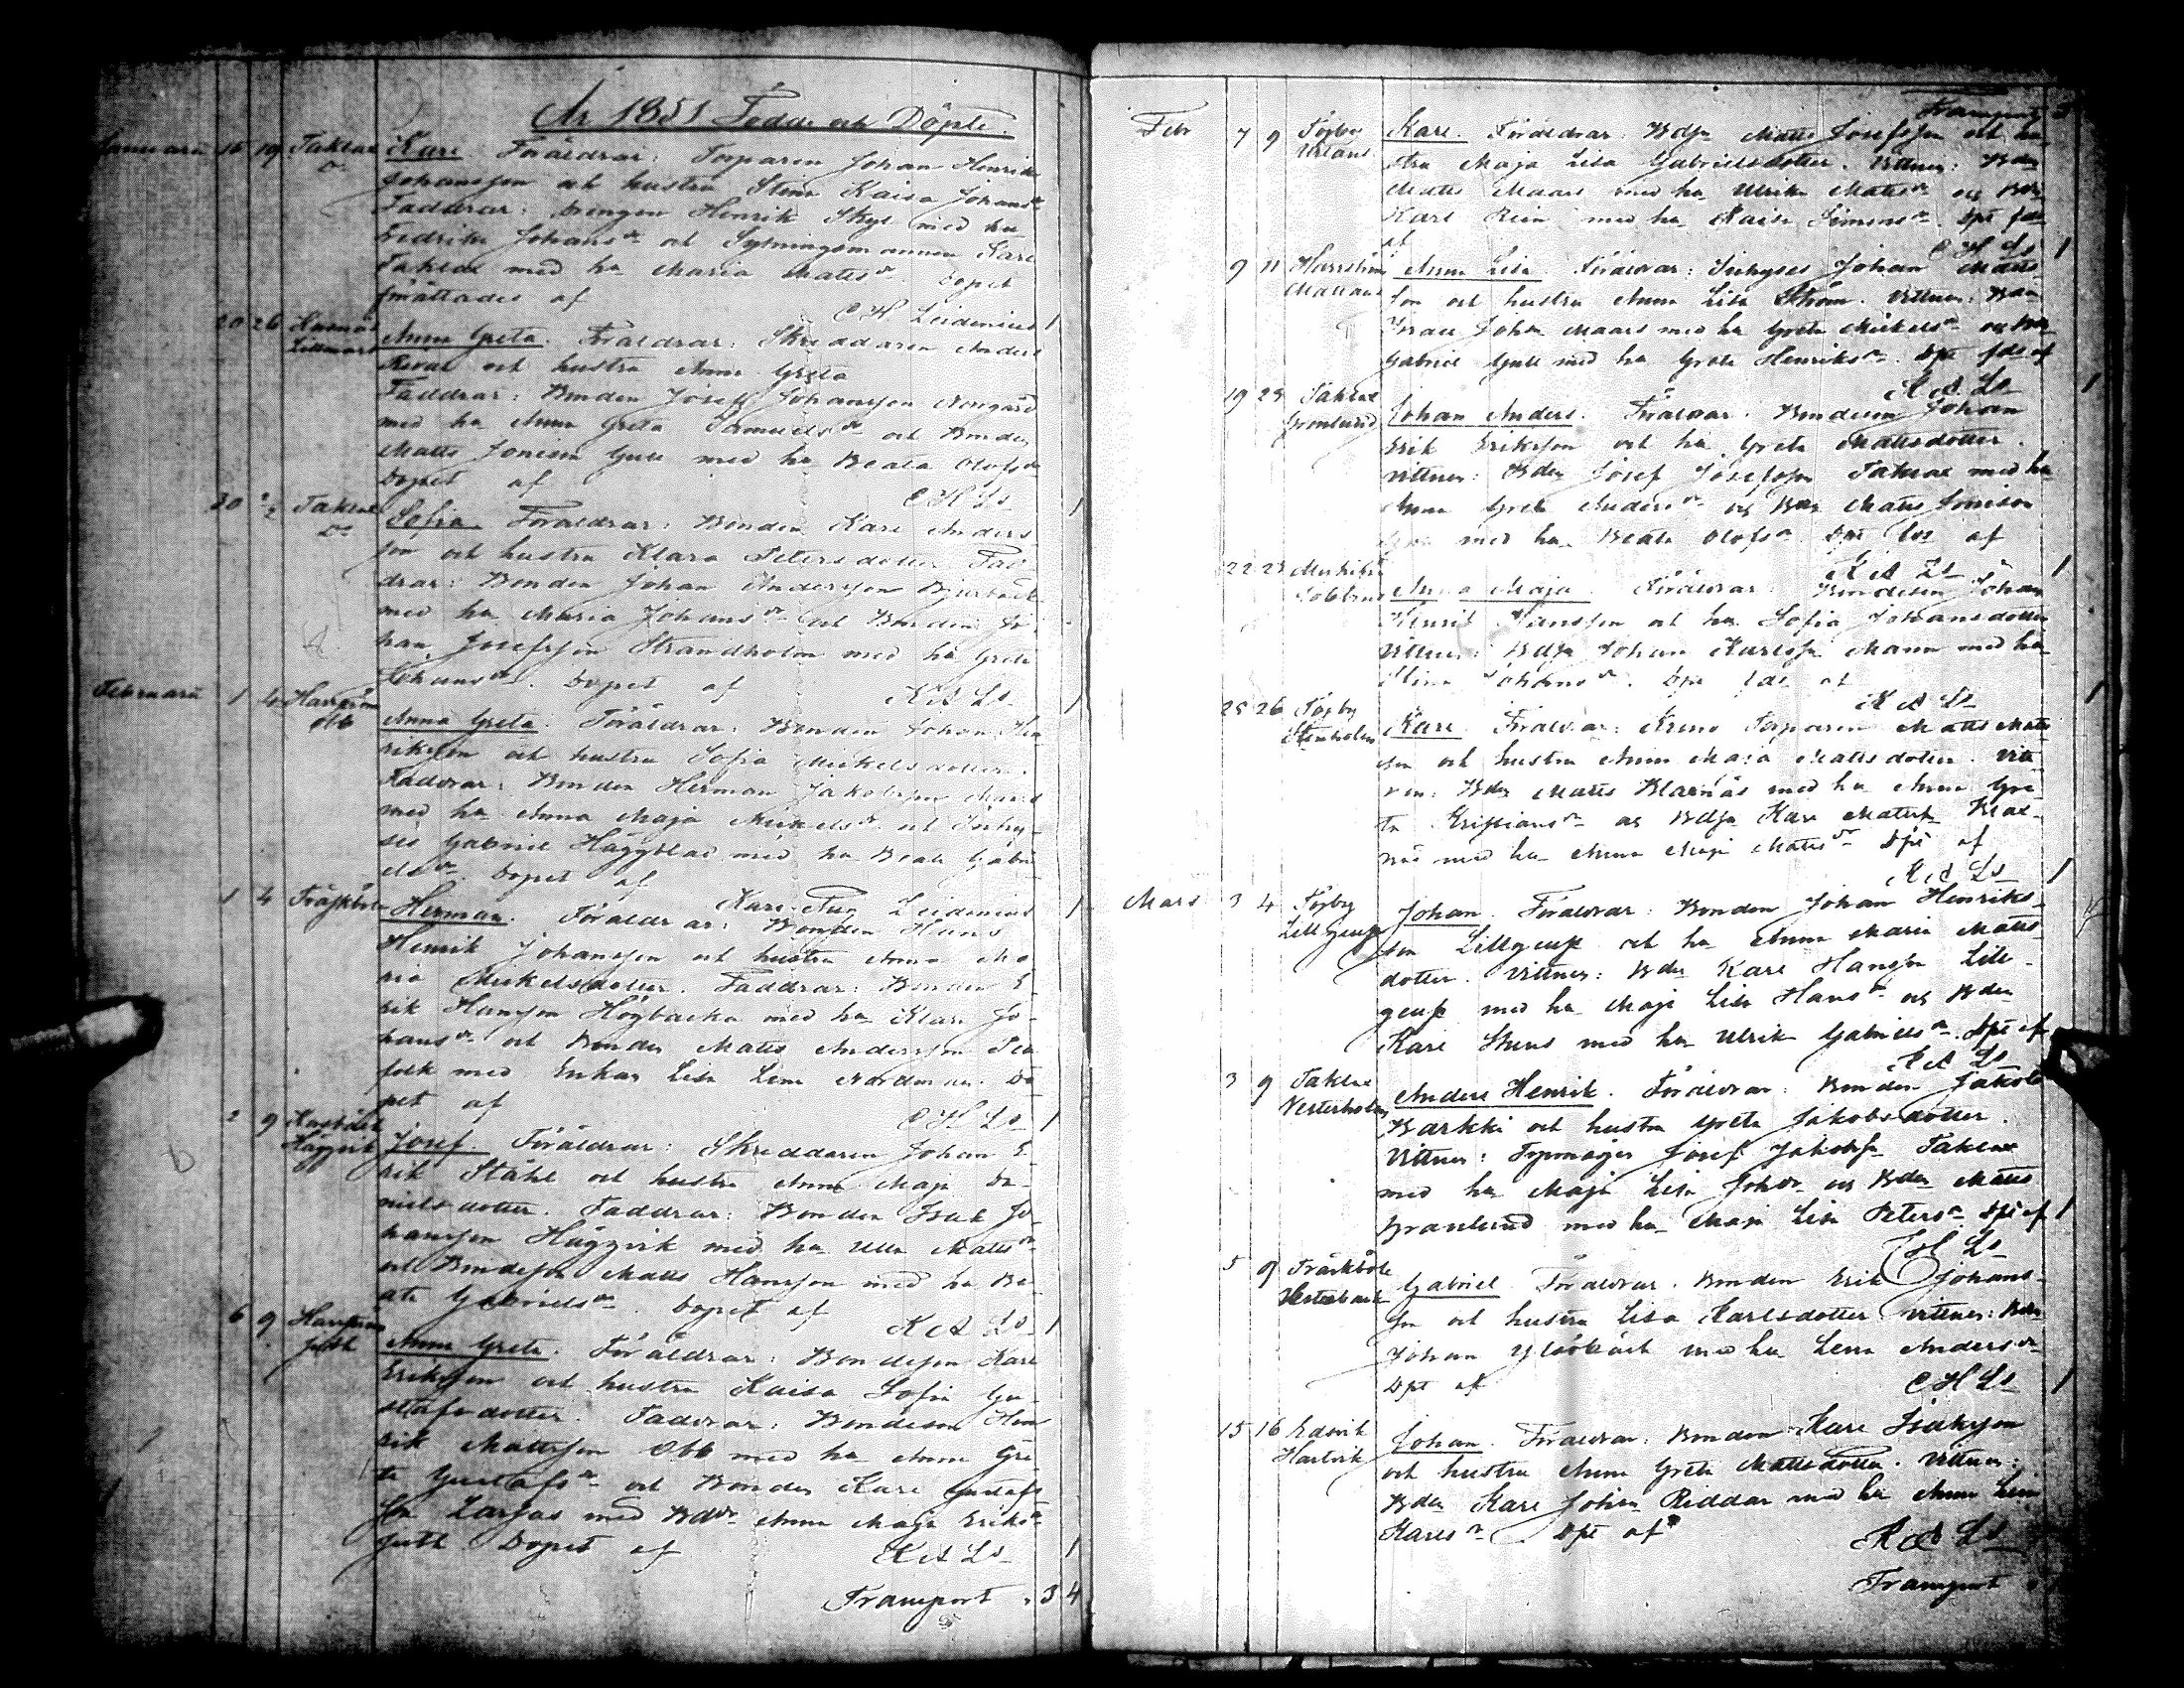 År 1851 Födde och Döpte.
Januari 16 19 Taklax
Karl. Föräldrar: Torparen Johan Henrik
Johansson och hustru Stina Kaisa Johansdr
Faddrar: Drengen Henrik Skyt med hu
Fredrika Johansdr och Sytningsmannen Karl
Taklax med hu Maria Mattsdr. Dopet
förättades af
C H Leidenius 1
20 26
Anna Greta. Föräldrar: Skreddaren Anders
och hustru Anna Greta
Faddrar: Bonden Josef Johansson Norrgård
med hu Anna Greta Samuelsdr och Bonden
Matts Jonsson Gull med hu Beata Olofsdr
Dopet af
C H Ls 1
30 2/2 Taklax
Sofia. Föräldrar: Bonden Karl Anders
son och hustru Klara Petersdotter Fad-
drar: Bonden Johan Andersson Bjurbäck
med hu Maria Johansdr och Bonden Jo-
han Josefsson Strandholm med hu Greta
Johansdr. Dopet af
K A Ls 1
Februari 1 4 Harrström
Obb
Anna Greta. Föräldrar: Bonden Johan Hen
riksson och hustru Sofia Mickelsdotter.
Faddrar: Bonden Herman Jakobsson Mars
med hu Anna Maja Mickelsdr och Inhy-
ses Gabriel Häggblad med hu Beata Gabri
elsdr. Dopet af
Karl Aug Leidenius 1
1 4 Träskböle
Herman. Föräldrar: Bonden Hans
Henrik Johansson och hustru Anna Ma
ria Mickelsdotter. Faddrar: Bonden E-
rik Hansson Högbacka med hu Klara Jo-
hansdr och Bonden Matts Andersson
folk med Enkan Lisa Lena Nordman. Do
pet af
C H Ls 1
2 9
Häggvik
Josef. Föräldrar: Skreddaren Johan E-
rik Ståhl och hustru Anna Maja Da-
nielsdotter. Faddrar: Bonden Isak Jo-
hansson Häggvik med hu Ulla Mattsdr
och Bondeson Matts Hansson med hu Be-
ata Gabrielsdr. Dopet af
K A Ls 1
6 9 Harrström
Juth
Anna Greta. Föräldrar: Bondeson Karl
Eriksson och hustru Kaisa Sofia Gu-
stafsdotter. Faddrar: Bondeson Hen
rik Mattsson Obb med hu Anna Gre-
ta Gustafsdr och Bonden Karl Gustafs
son Largas med Bdr Anna Maja Eriksdr
Juth Dopet af
K A Ls 1
Transport 3 4
Transport
Febr 7 9 Töjby
Karl. Föräldrar: Bdsn Matts Josefsson och hu
stru Maja Lisa Gabrielsdotter. Vittnen: Bdn
Matts Mars med hu Ulrika Mattsdr och Bdn
Karl Rein med hu Kaisa Simonsdr. Dpt fds
af
C H Ls 1
9 11 Harrström
Anna Lisa. Föräldrar: Inhyses Johan Matts
son och hustru Anna Lisa Ström. Vittnen: Bdn
Johan Mars med hu Greta Mickelsdr och Bdn
Gabriel Gull med hu Greta Henriksdr. Dpt fds af
K A Ls 1
19 23 Taklax
Granlund
Johan Anders. Föräldrar. Bondeson Johan
Erik Eriksson och hu Greta Mattsdotter.
Vittnen: Bdn Josef Josefsson Taklax med hu
Anna Greta Andersdr och Bdn Matts Jonsson
med hu Beata Olofsdr. Dpt fds af
K A Ls 1
22 23
Anna Maja. Föräldrar: Bondeson Johan
Henrik Hansson och hu Sofia Johansdotter
Vittnen: Bdsn Johan Karlsson Mann med hu
Stina Johansdr. Dpt fds af
K A Ls 1
25 26 Töjby
Stenholm
Karl. Föräldrar: Krono Torparen Matts Matts
son och hustru Anna Maja Mattsdotter. Vitt
nen: Bdn Matts Blaxnäs med hu Anna Gre-
ta Kristiansdr och Bdsn Karl Mattsson Blax-
näs med hu Anna Maja Mattsdr Dpt af
K A Ls 1
Mars 3 4 Töjby
Lillgeup
Johan. Föräldrar: Bonden Johan Henriks-
son Lillgeup och hu Anna Maria Matts
dotter. Vittnen: Bdn Karl Hansson Lill-
geup med hu Maja Lisa Hansdr och Bdn
Karl Stens med hu Ulrika Gabrielsdr. Dpt af
K A Ls
3 9 Taklax
Vesterholm
Anders Henrik. Föräldrar: Bonden Jakob
Barkki och hustru Greta Jakobsdotter.
Vittnen: Josef Jakobsson Taklax
med hu Maja Lisa Johsdr och Bdn Matts
Granlund med hu Maja Lisa Petersdr Dpt af 1
C H Ls
5 9 Träskböle
Vesterback
Gabriel. Föräldrar. Bonden Erik Johans-
son och hustru Lisa Karlsdotter Vittnen: Bdn
Johan med hu Lena Andersdr
Dpt af
C H Ls 1
15 16 Edsvik
Hartvik
Johan. Föräldrar: Bonden Karl Isaksson
och hustru Anna Greta Mattsdotter. Vittnen:
Bdn Karl Johan Riddar med hu Anna Lena
Karlsdr. Dpt af
K A Ls
Transport